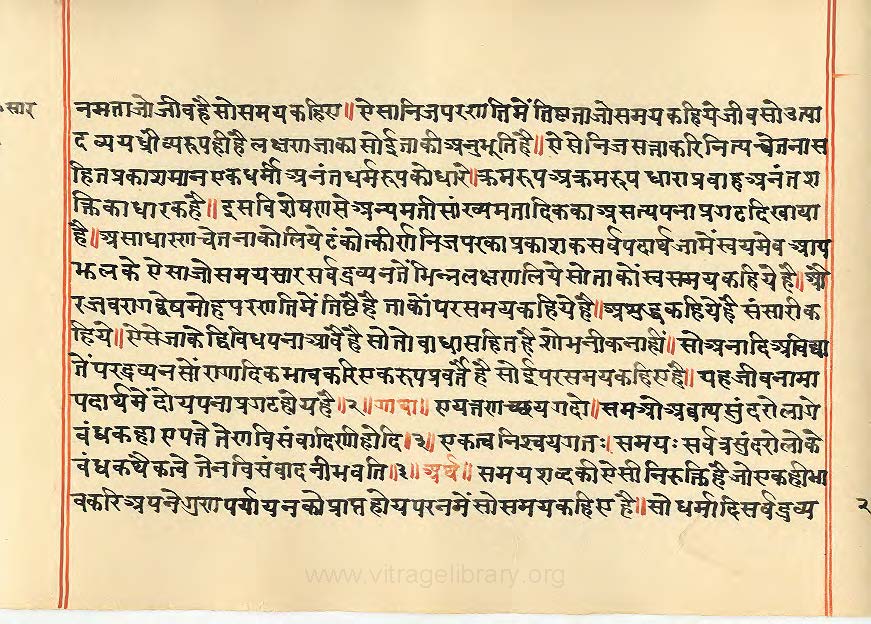 सार
नमताजोजीवहैसोसमयकहिए॥ऐसानिजपरणतिमेंतिष्टताजोसमयकहियेजीवसोउत्पा
दव्ययध्रौव्यरूपहीहैलक्षणजाकासोईजाकीअनुभूतिहै॥ऐसेनिजसत्ताकरिनित्यचेतनास
हितप्रकाशमानएकधर्मीअनंतधर्मरूपकोधारे॥क्रमरूपअक्रमरूपधाराप्रवाहअनंतश
क्तिकाधारकहै॥इसविशेषणसेअन्यमतीसांख्यमतादिककाअसत्यपनाप्रगटदिखाया
है॥असाधारणचेतनाकोलियेटंकोत्कीर्णनिजपरकाप्रकाशकसर्वपदार्थजामेंस्वयमेवआप
झलकेऐसाजोसमयसारसर्वद्रव्यनतेंभिन्नलक्षणलियेसोताकोंस्वसमयकहियेहै॥औ
रजवरागद्वेषमोहपरणतिमेंतिष्ठैहैताकोंपरसमयकहियेहै॥अशुद्धकहियेहैसंसारीक
हिये॥ऐसेजाकेद्विविधपनाआवैहैसोतोबाधासहितहैशोभनीकनाहीं॥सोअनादिअविद्या
तेंपरद्रव्यनसोंरागादिकभावकरिएकरूपप्रवर्तैहैसोईपरसमयकहिएहै॥यहजीवनामा
पदार्थमेंदोयपनाप्रगटहोयहै॥२॥गाथा॥एयत्तणच्छयगदो॥समओसवत्यसुंदरोलोगे
बंधकहाएयत्तेतेणविसंवादिणीहोदि॥३॥एकत्वनिश्चयगतः।समयःसर्वत्रसुंदरोलोके
बंधकथैकत्वेतेनविसंवादनीभवति॥३॥अर्थ॥समयशब्दकीऐसीनिरुक्तिहैजोएकहीभा
वकरिअपनेगुणपर्यायनकोप्राप्तहोयपरनमेंसोसमयकहिएहै॥सोधर्मादिसर्वद्रव्य
२
www.vitragelibrary.org